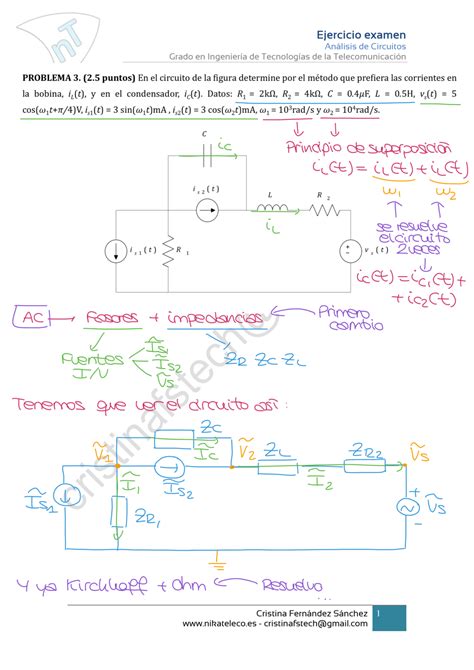 nT
Ejercicio examen
Análisis de Circuitos
Grado en Ingeniería de Tecnologías de la Telecomunicación
PROBLEMA 3. (2.5 puntos) En el circuito de la figura determine por el método que prefiera las corrientes en
la bobina, iL(t), y en el condensador, iC(t). Datos: R1 = 2kΩ, R2 = 4kΩ, C = 0.4μF, L = 0.5H, vs(t) = 5
cos(ω1t+π/4)V, is1(t) = 3 sin(ω1t)mA , is2(t) = 3 cos(ω2t)mA, ω1 = 10³rad/s y ω2 = 10⁴rad/s.
Principio de superposición
iL(t) = iL(t) + iL(t)
ω1 ω2
se resuelve
el circuito
2 veces
iC(t) = iC1(t) +
+ iC2(t)
C
iC
is2(t)
L
R2
iL
is1(t)
R1
vs(t)
AC → Fasores + impedancias ← Primero cambio
Fuentes
I/V
Ĩs1
Ĩs2
Ṽs
ZR ZC ZL
Tenemos que ver el circuito así:
ZC
ĨC
Ṽ1
Ṽ2
ZL
ZR2
Ṽs
Ĩs1
Ĩ1
Ĩs2
Ĩ2
ZR1
Ṽs
Y ya Kirchhoff + Ohm ← Resuelvo...
cristinafstech@
Cristina Fernández Sánchez 1
www.nikateleco.es - cristinafstech@gmail.com